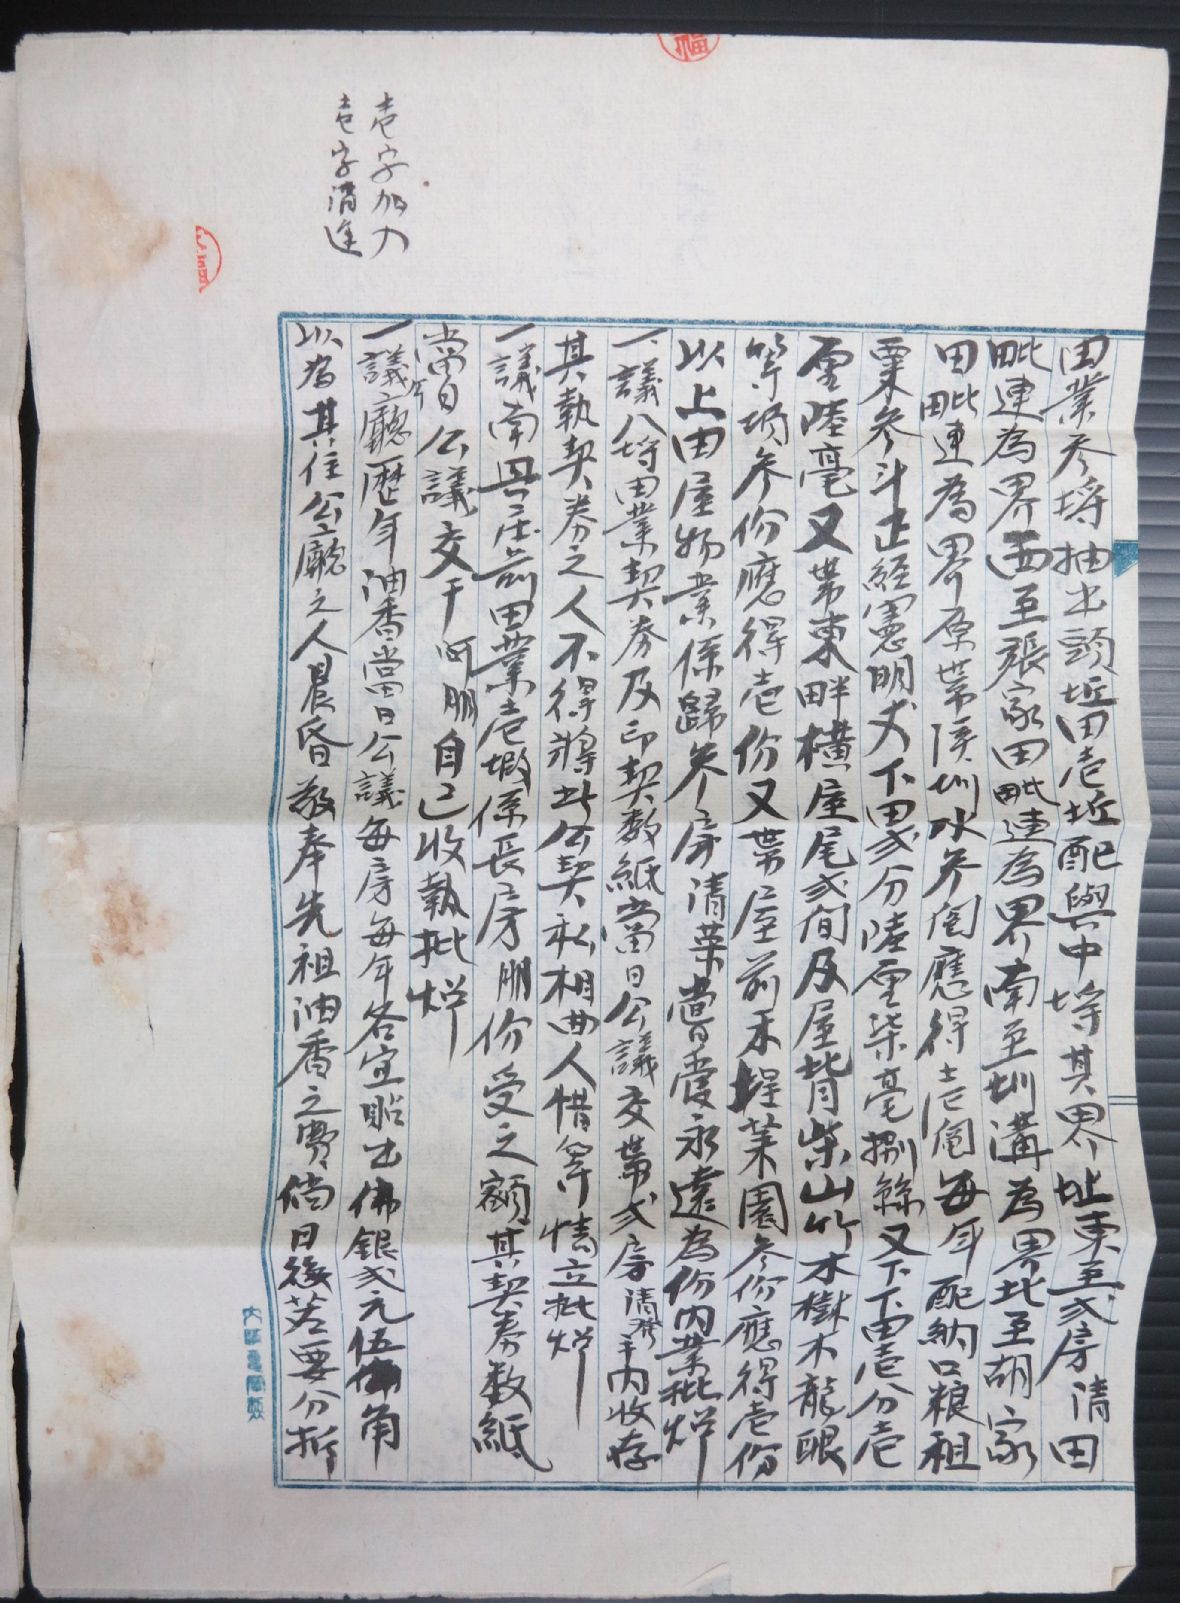 田業参埒抽出頭坵田壱坵配與中埒其界址東至弍房清田
毗連為界西至張家田毗連為界南至圳溝為界北至胡家
田毗連為界原帶陂圳水参鬮應得壱鬮每年配納口粮租
粟参斗正經憲明丈下田弍分陸厘柒毫捌絲又下下田壱分壱
厘陸毫又帶東畔橫屋尾弍間及屋背柴山竹木樹木龍眼
等項参份應得壱份又帶屋前禾埕菜園参份應得壱份
以上田屋物業係歸参房清葉嘗受永遠為份內業批炤
一議八埒田業契券及印契数紙當日公議交帶弍房清發手內收存
其執契券之人不得將此公契私相典人借等情立批炤
一議南興庄前田業壱塅係長房朋份受之額其契券数紙
當日公議交于阿朋自己收執批炤
一議廳歷年油香當日公議每房每年各宜貼出佛銀弍元伍角
以為其住公廳之人晨昏敬奉先祖油香之費倘日後若要分拆
壱字加力
壱字清連
福